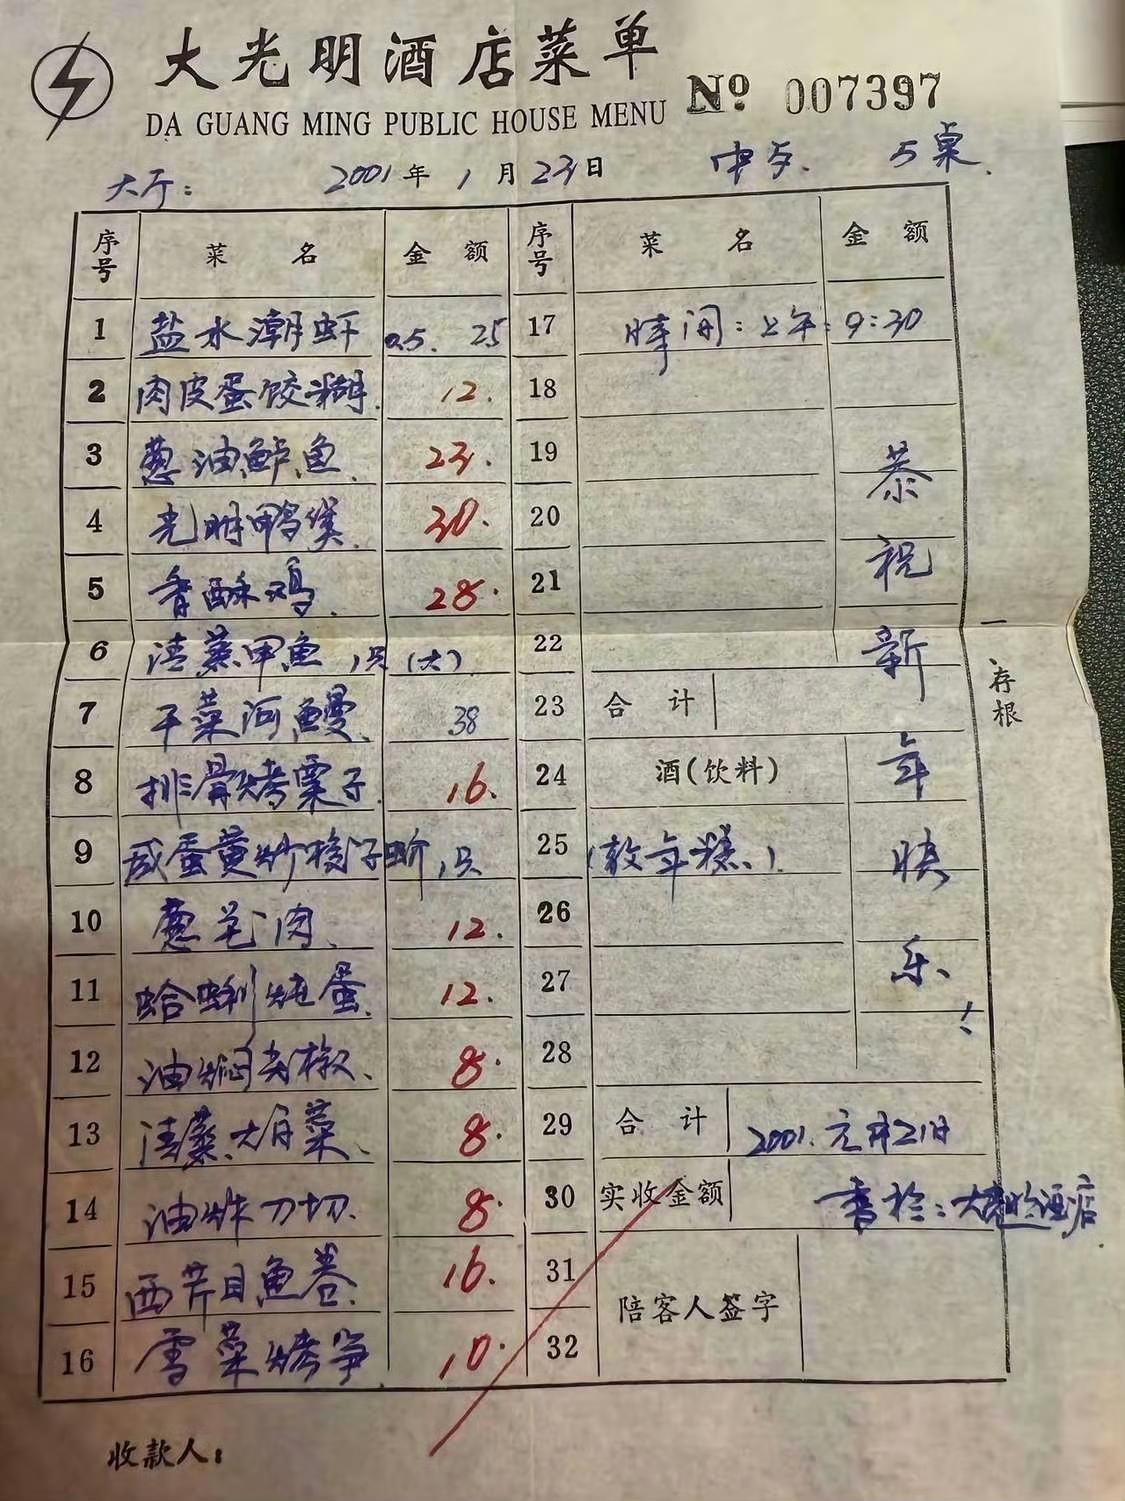 大光明酒店菜单
DA GUANG MING PUBLIC HOUSE MENU
№ 007397
大厅: 2001年1月23日 中与. 5桌.
序号 菜名 金额 序号 菜名 金额
1 盐水潮虾 0.5. 25 17 時间:上午:9:30
2 肉皮蛋饺糊. 12. 18
3 葱油鲈鱼. 23. 19
4 光明鸭煲. 30. 20
5 香酥鸡. 28. 21
6 清蒸甲鱼 1只(大) 22
7 干菜河鳗. 38 23 合计
8 排骨烤栗子. 16. 24 酒(饮料)
9 咸蛋黄炒梭子蟹 1只 25 (敬年糕.)
10 葱芼肉. 12. 26
11 蛤蜊炖蛋. 12. 27
12 油焖尖椒. 8. 28
13 清蒸大白菜. 8. 29 合计 2001.元月21日
14 油炸刀切. 8. 30 实收金额 書於:大光明酒店.
15 西芹目鱼卷. 16. 31 陪客人签字
16 雪菜烤笋 10. 32
恭祝新年快乐!
一、存根
收款人: